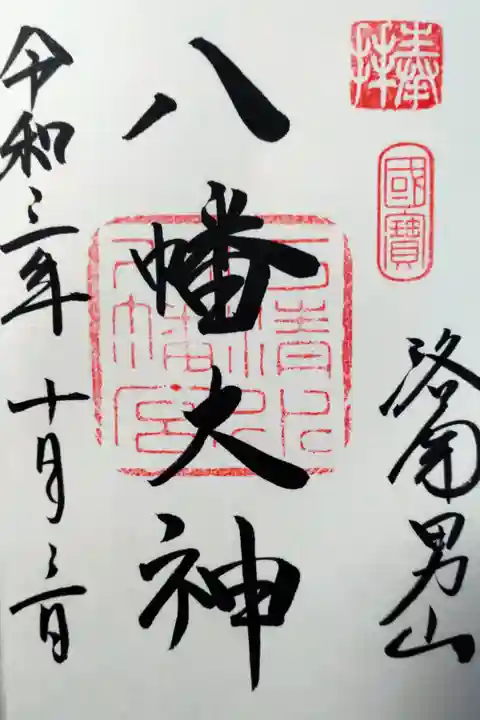 奉拝
國寶
洛南男山
八幡大神
石清水八幡宮
令和三年十月三日